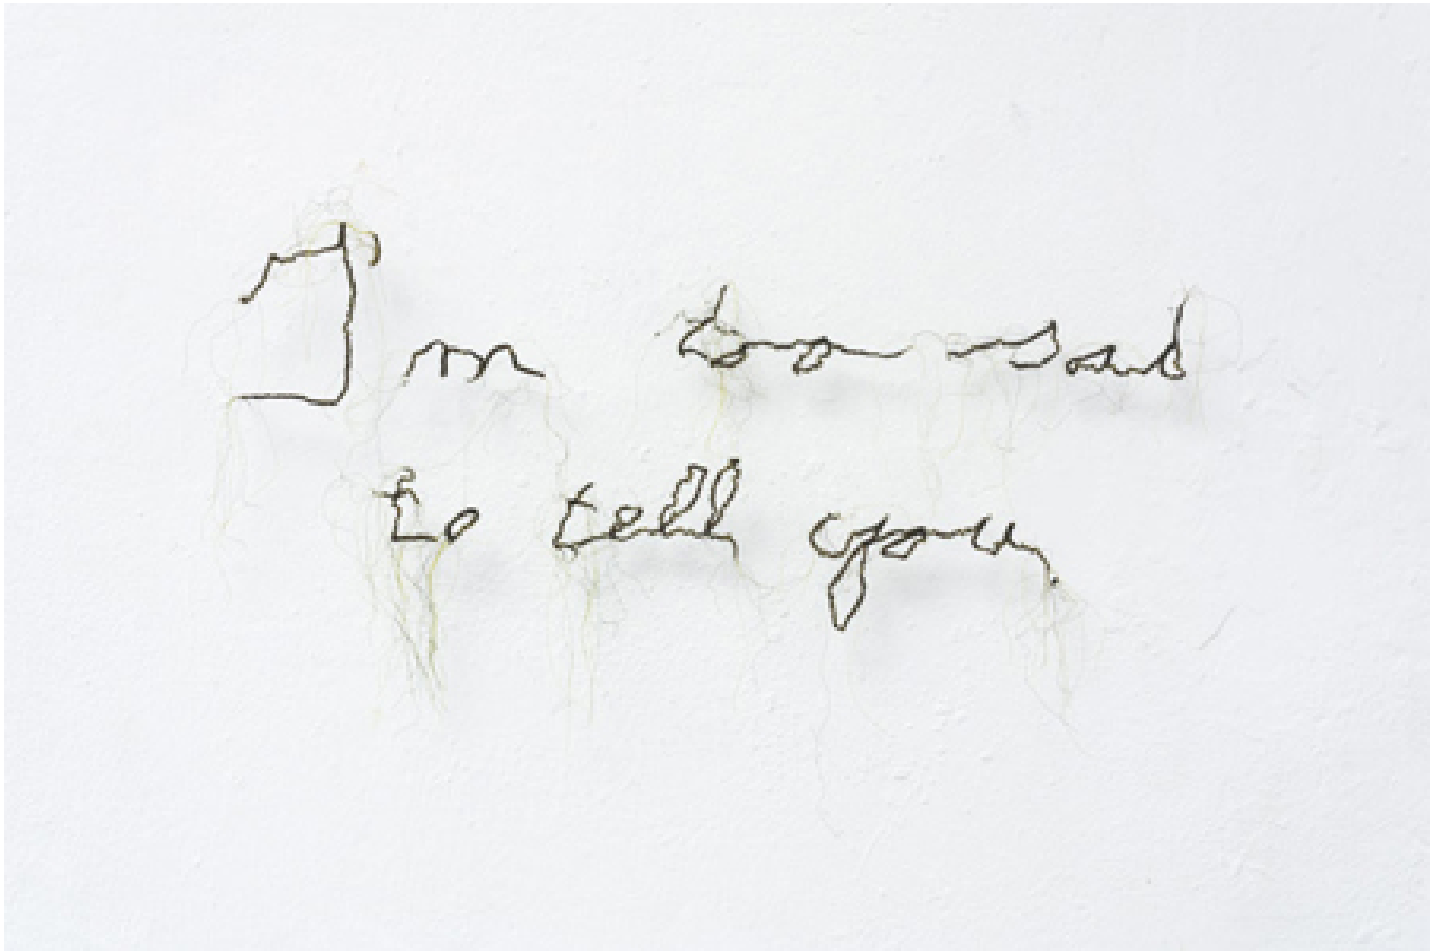 I'm too sad
to tell you